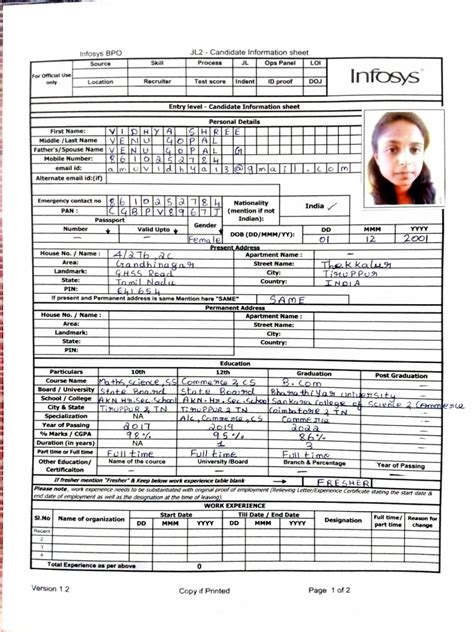 Infosys BPO JL2 - Candidate Information sheet
For Official Use only Source Skill Process JL Ops Panel LOI
Location Recruiter Test score Indent ID proof DOJ
Infosys
Entry level - Candidate Information sheet
Personal Details
First Name: VIDHYA SHREE
Middle /Last Name VENU GOPAL
Father's/Spouse Name VENU GOPAL G
Mobile Number:
email id: @gmail.com
Alternate email id:(if)
Emergency contact no
PAN :
Nationality (mention if not Indian): India ✓
Passport
Number Valid Upto Gender
- - Female
DOB (DD/MMM/YY): DD MMM YYYY
01 12 2001
Present Address
House No. / Name : 4/276, 2C Apartment Name : -
Area: Gandhinagar Street Name: Thekkalur
Landmark: GHSS Road City: Tiruppur
State: Tamil Nadu Country: INDIA
PIN: 641654
If present and Permanent address is same Mention here "SAME" SAME
Permanent Address
House No. / Name : Apartment Name :
Area: Street Name:
Landmark: City:
State: Country:
PIN:
Education
Particulars 10th 12th Graduation Post Graduation
Course Name Maths, science, SS Commerce & CS B.com -
Board / University State Board State Board Bharathiyar University
School / College AKN Hr.Sec.School AKN Hr.Sec.School Sankara College of Science & Commerce
City & State Tiruppur & TN Tiruppur & TN Coimbatore & TN
Specialization NA A/c, Commerce, CS Commerce
Year of Passing 2017 2019 2022
% Marks / CGPA 98% 95% 86%
Duration (in years) 1 1 3
Part time or Full time Full time Full time Full time
Other Education/ Certification Name of the cource University/Board Branch & Percentage Year of Passing
- - - -
If fresher mention "Fresher" & Keep below work experience table blank FRESHER
Please note, work experience needs to be substantiated with original proof of employment (Relieving Letter/Experience Certificate stating the start date & end date of employment as well as the designation at the time of leaving).
WORK EXPERIENCE
Sl.No Name of organization Start Date Till Date / End Date Designation Full time/ part time Reason for change
DD MMM YYYY DD MMM YYYY
Recent
2
3
4
Total Experience as per above 0
Version 1.2 Copy if Printed Page 1 of 2